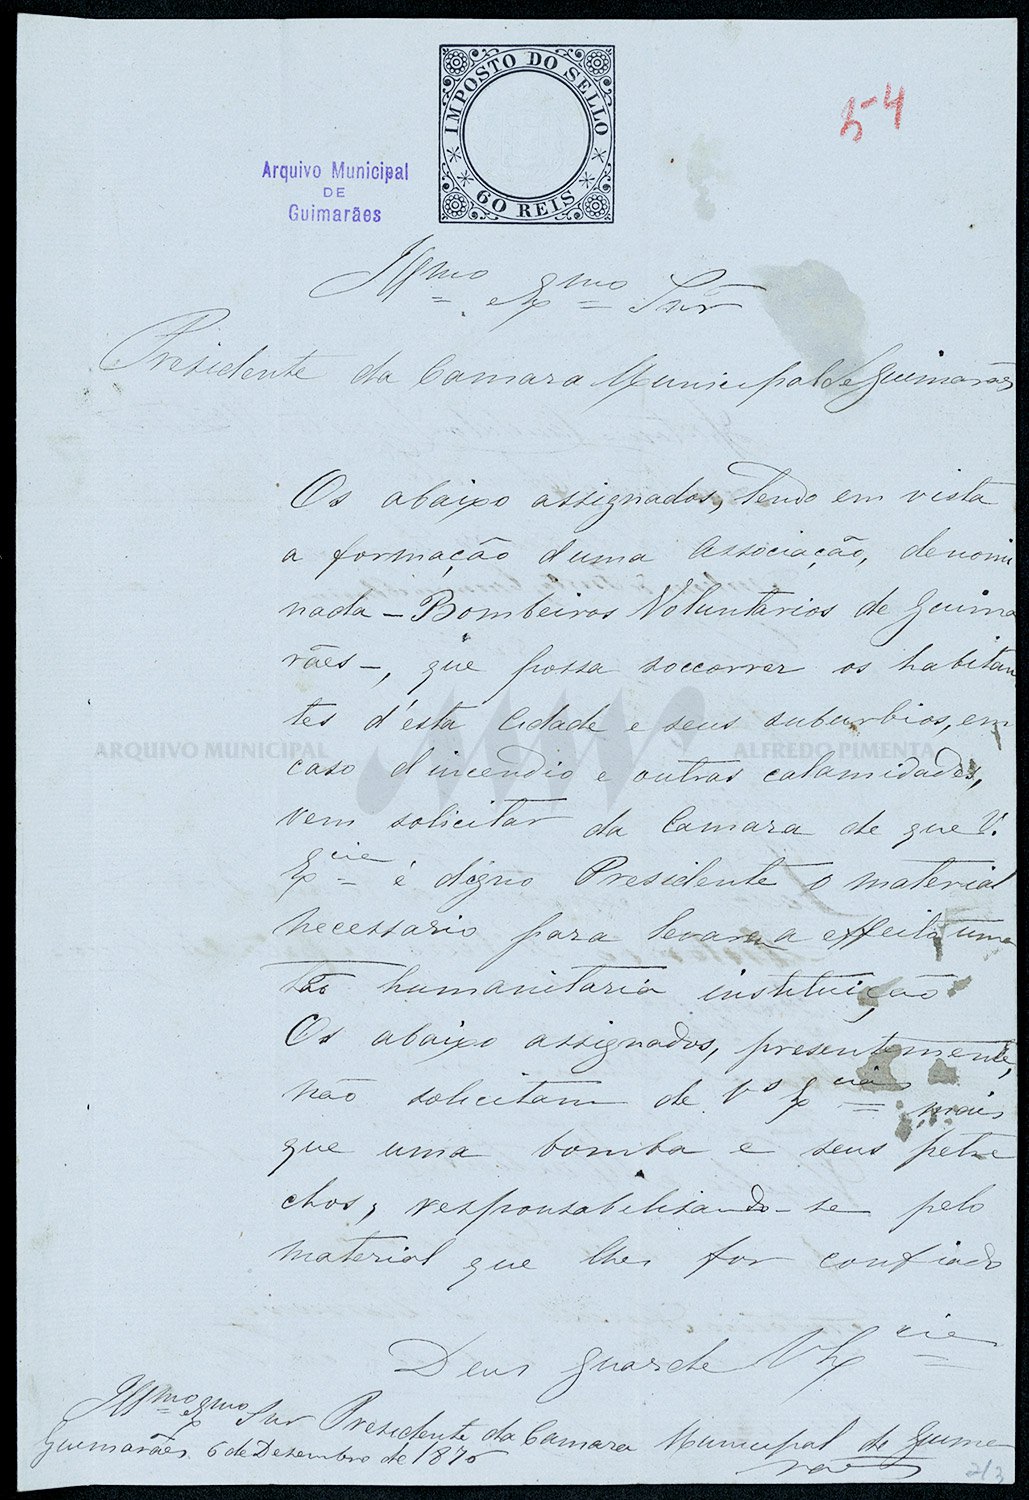 IMPOSTO DO SELLO
60 REIS
54
Arquivo Municipal
DE
Guimarães
Illmo Exmo Snr
Presidente da Camara Municipal de Guimarães
Os abaixo assignados, tendo em vista
a formação d'uma Associação, denomi
nada - Bombeiros Voluntarios de Guima
rães -, que possa soccorrer os habitan
tes d'esta Cidade e seus suburbios, em
ARQUIVO MUNICIPAL ALFREDO PIMENTA
caso d'incendio e outras calamidades,
vem solicitar da Camara de que V.
Excia é digno Presidente o material
necessario para levarem a effeito uma
tão humanitaria instituição
Os abaixo assignados, presentemente,
não solicitam de Vs Excias mais
que uma bomba e seus petre
chos, responsabilisando-se pelo
material que lhes for confiado
Deus Guarde V Excia
Illmo Exmo Snr Presidente da Camara Municipal de Guima
rães
Guimarães 6 de Desembro de 1876
2/3